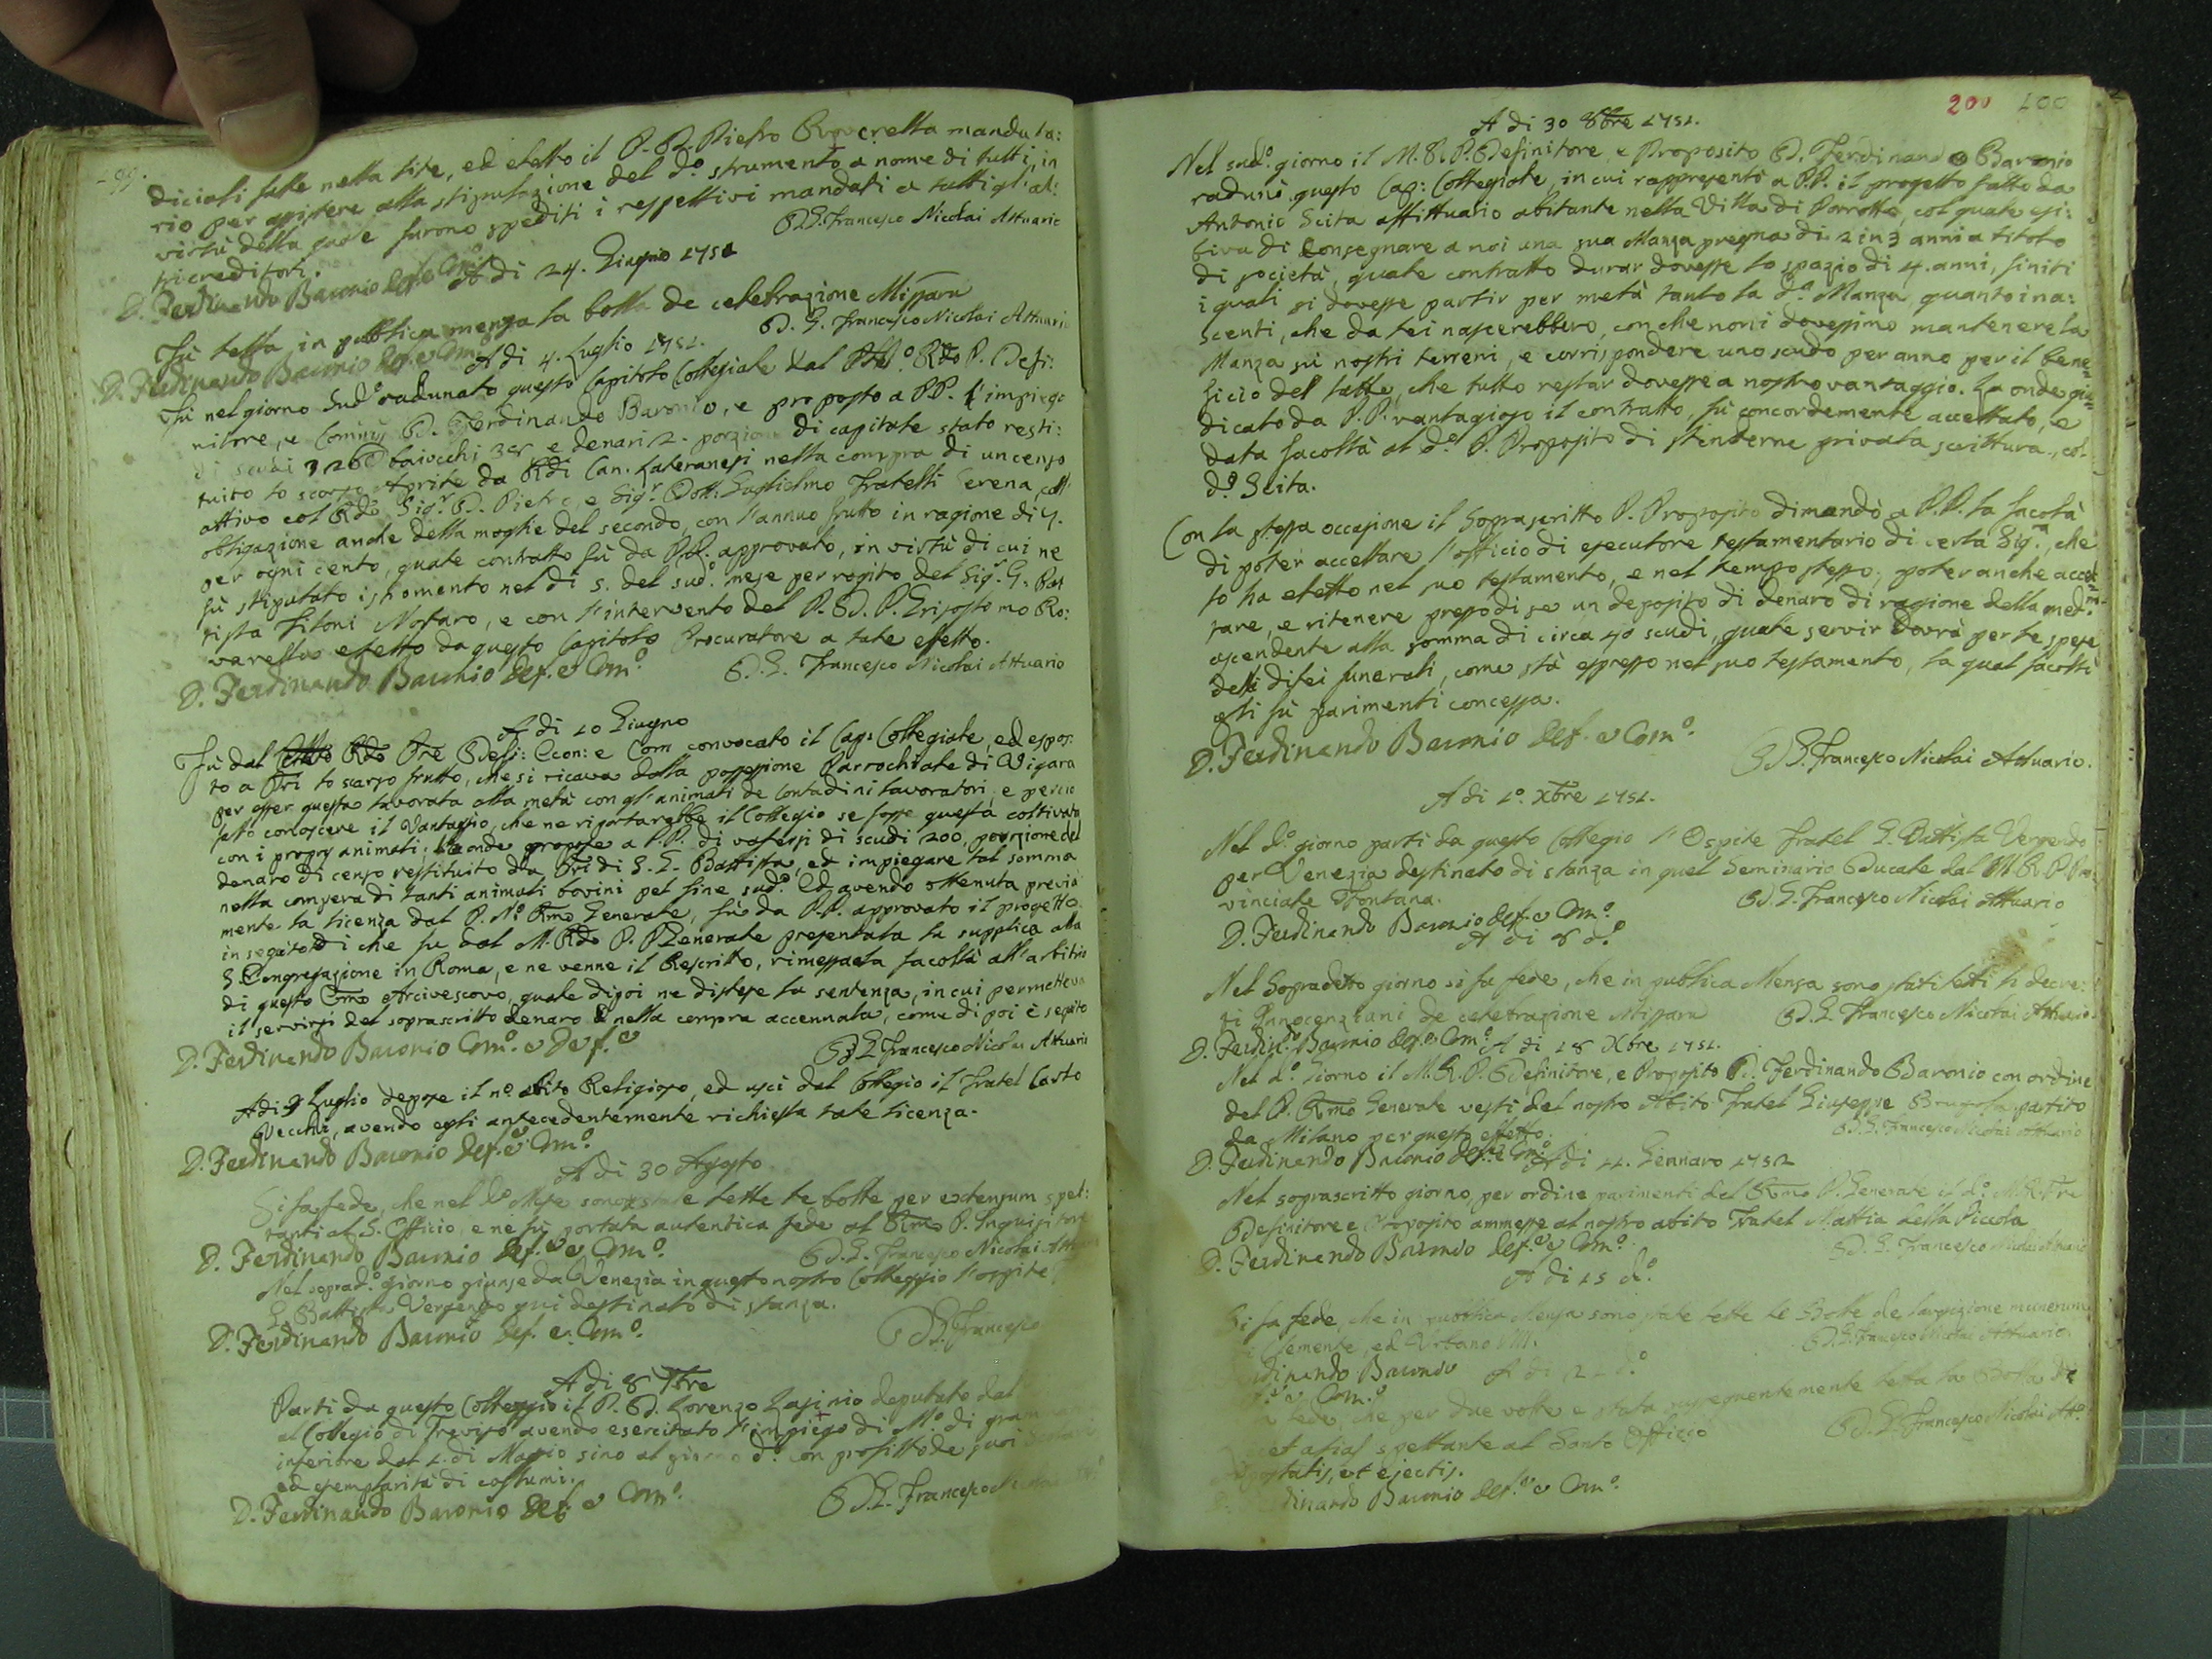 199.
diciali fatte nella lite, ed eletto il P. D. Pietro Rovarella mandata:
rio per assistere alla stipulazione del d.º strumento a nome di tutti, in
virtù della quale furono spediti i respettivi mandati a tutti gl'al:
tri creditori.
D. G. Francesco Nicolai Attuario
D. Ferdinando Baronio Def. e Com.º
A di 24. Giugno 1751
Fù letta in pubblica mensa la bolla de celebrazione Missarum
D. G. Francesco Nicolai Attuario
D. Ferdinando Baronio Def. e Com.º
A di 4. Luglio 1751.
Fù nel giorno sud.º radunato questo Capitolo Collegiale dal Rdo P. Defi:
nitore, e Com.º D. Ferdinando Baronio, e proposto a PP. l'impiego
di scudi 326 baiocchi 38 e denari 2. porzione di capitale stato resti:
tuito lo scorso Aprile da Rdi Can. Lateranesi nella compra di un censo
attivo col Rdo Sig.r D. Pietro, e Sig.r Dott. Guglielmo Fratelli Serena, coll'
obligazione anche della moglie del secondo, con l'annuo frutto in ragione di 4.
per ogni cento, quale contratto fù da P.P. approvato, in virtù di cui ne
fù stipulato istromento nel di 5. del sud.º mese per rogito del Sig.r G: Bat
tista Filoni Notaro, e con l'intervento del P. D. P. Grisostomo Ro:
varella eletto da questo Capitolo Procuratore a tale effetto.
D. Ferdinando Baronio Def. e Com.º
D. G. Francesco Nicolai Attuario
A di 10 Giugno
Fù dal Rdo Pre Defi: Econ: e Com convocato il Cap: Collegiale, ed espos:
to a Pri lo scarso frutto, che si ricava dalla possessione Parrochiale di Vigara
per esser questa lavorata alla metà con gl'animali de Contadini lavoratori, e perciò
fatto conoscere il Vantaggio, che ne riportarebbe il Collegio se fosse questa coltivata
con i proprj animali; Laonde propose a P.P. di valersi di scudi 200, porzione del
denaro di censo restituito da Pri di S. G. Battista, ed impiegare tal somma
nella compera di tanti animali bovini pel fine sud.º Ed avendo ottenuta previa:
mente la licenza dal P. N.º Rmo Generale, fù da P.P. approvato il progetto.
in seguito di che fu dal M. Rdo P. Generale presentata la supplica alla
S Congregazione in Roma, e ne venne il Rescritto, rimessa la facoltà all'arbitrio
di questo Emo Arcivescovo, quale di poi ne distese la sentenza, in cui permetteva
il servirsi del soprascritto denaro nella compra accennata, come di poi è seguito
D. Ferdinando Baronio Com.º e Def.e
D G Francesco Nicolai Attuario
A di 9 Luglio depose il nº abito Religioso, ed uscì dal Collegio il Fratel Carlo
Vecchi, avendo egli antecedentemente richiesta tale licenza.
D. Ferdinando Baronio Def.e e Com.º
A di 30 Agosto
Si fa fede, che nel dº Mese sono state lette le bolle per extensum spet:
tanti al S. Officio, e ne fù portata autentica fede al Rmo P. Inquisitore
D. Ferdinando Baronio Def.e e Com.º
D. G. Francesco Nicolai Attuario
Nel soprad.º giorno giunse da Venezia in questo nostro Colleggio l'ospite
G. Battista Vergendo qui destinato di stanza.
D. Ferdinando Baronio Def. e Com.º
D G. Francesco
A di 8 7bre
Parti da questo Colleggio il P. D. Lorenzo Lasinio deputato dal
al Collegio di Treviso avendo esercitato l'impiego di M.º di gramm
inferiore dal 1. di Maggio sino al giorno d.º con profitto de suoi
ed esemplarità di costumi.
D. Ferdinando Baronio Def. e Com.º
D. G. Francesco Nicolai
200 200
A di 30 8bre 1751.
Nel sud.º giorno il M. R. P. Definitore, e Proposito D. Ferdinando Baronio
radunò questo Cap: Collegiale, in cui rappresentò a P.P. il progetto fatto da
Antonio Scita affittuario abitante nella Villa di Porrotto, col quale esi:
biva di consegnare a noi una sua Manza pregna di 2 in 3 anni a titolo
di società, quale contratto durar dovesse lo spazio di 4. anni, finiti
i quali si dovesse partir per metà tanto la d.a Manza, quanto i na:
scenti, che da lei nascerebbero, con che noi dovessimo mantenere la
Manza sù nostri terreni, e corrispondere uno scudo per anno per il bene=
ficio del latte, che tutto restar dovesse a nostro vantaggio. La onde giu=
dicato da P.P. vantagioso il contratto, fù concordemente accettato, e
data facoltà al d.º P. Proposito di stenderne privata scrittura, col
d.º Scita.
Con la stessa occasione il Soprascritto P. Proposito dimandò a P.P. la facoltà
di poter accettare l'officio di esecutore testamentario di certa Sig.ra, che
lo ha eletto nel suo testamento, e nel tempo stesso, poter anche accet=
tare, e ritenere presso di se un deposito di denaro di ragione della med.ma
ascendente alla somma di circa 40 scudi, quale servir dovrà per le spese
delli di lei funerali, come stà espresso nel suo testamento, la qual facoltà
gli fù parimenti concessa.
D. Ferdinando Baronio Def. e Com.º
D G. Francesco Nicolai Attuario.
A di 1º. Xbre 1751.
Nel d.º giorno parti da questo Collegio l'Ospite Fratel G. Battista Vergendo
per Venezia destinato di stanza in quel Seminario Ducale dal M. R. P. Pro
vinciale Fontana.
D. G. Francesco Nicolai Attuario
D. Ferdinando Baronio Def. e Com.º
A di 8 d.º
Nel Sopradetto giorno si fa fede, che in publica Mensa sono stati letti li decre:
ti Innocenziani de celebrazione Missarum
D. G. Francesco Nicolai Attuario
D. Ferdin.º Baronio Def. e Com.º
A di 18 Xbre 1751.
Nel d.º Giorno il M. R. P. Definitore, e Proposito D. Ferdinando Baronio con ordine
del P. Rmo Generale vestì del nostro Abito Fratel Giuseppe partito
da Milano per questo effetto.
D. G. Francesco Nicolai Attuario
D. Ferdinando Baronio Def. e Com.º
A di 11. Gennaro 1752
Nel soprascritto giorno, per ordine parimenti del Rmo P. Generale il d.º M. R. Pre
Definitore e Proposito ammesse al nostro abito Fratel Mattia della Piccola
D. Ferdinando Baronio Def.e e Com.º
D. G. Francesco Nicolai Attuario
A di 15 d.º
Si fa fede, che in publica Mensa sono state lette le Bolle de largizione munerum
Clemente, ed Urbano VIII.
D. G. Francesco Nicolai Attuario.
dinando Baronio
e Com.º
A di 2 d.º
fede, che per due volte è stata susseguentemente letta la Bolla de
spettante al Santo Officio
D. G. Francesco Nicolai Att.º
Apostatis, et ejectis.
dinando Baronio Def.e e Com.º